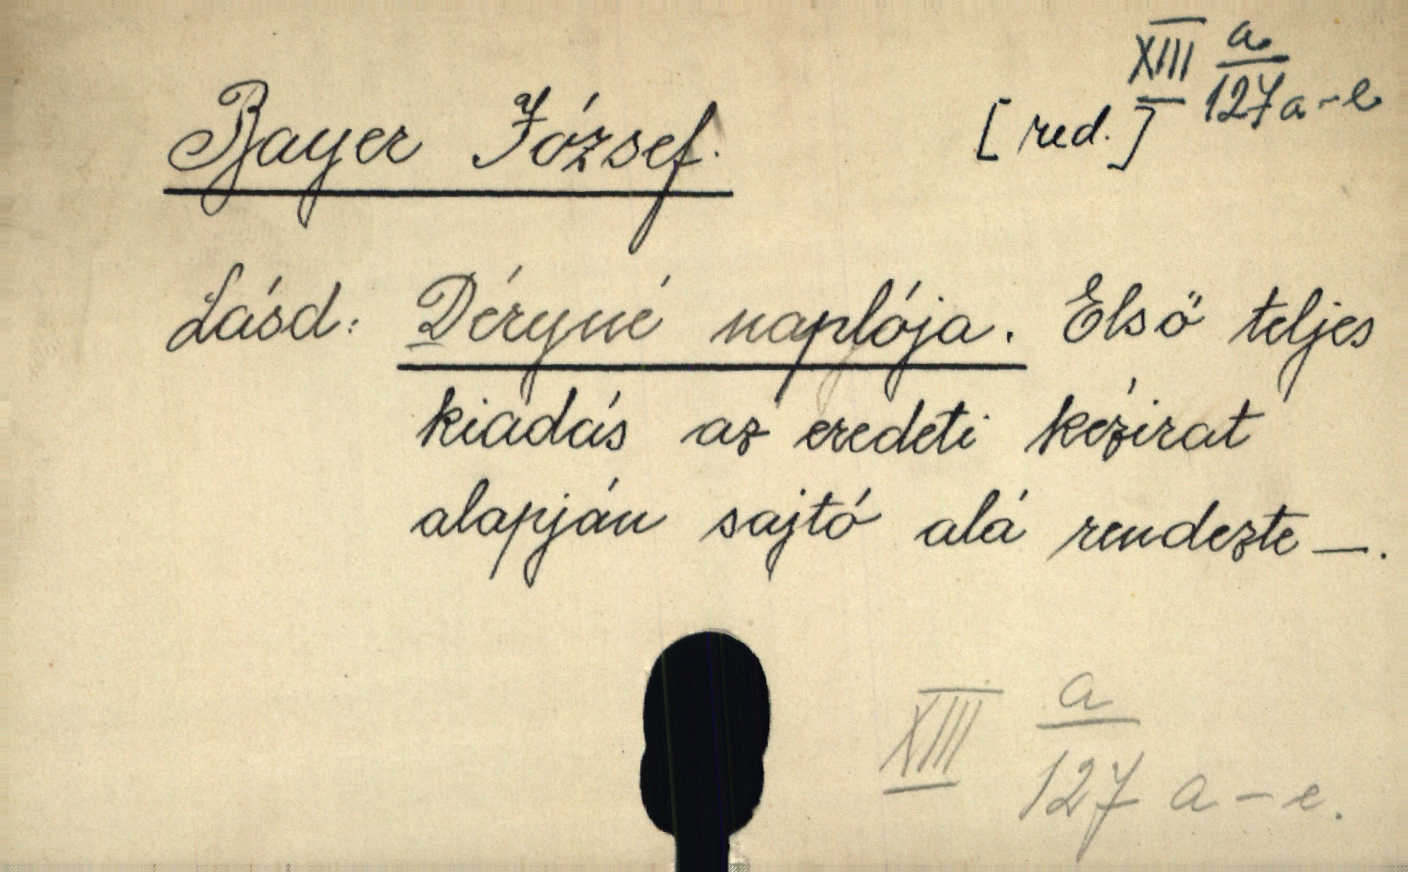 XIII a/127 a-e
Bayer József. [red.]
Lásd: Déryné naplója. Első teljes
kiadás az eredeti kézirat
alapján sajtó alá rendezte —.
XIII a/127 a-e.